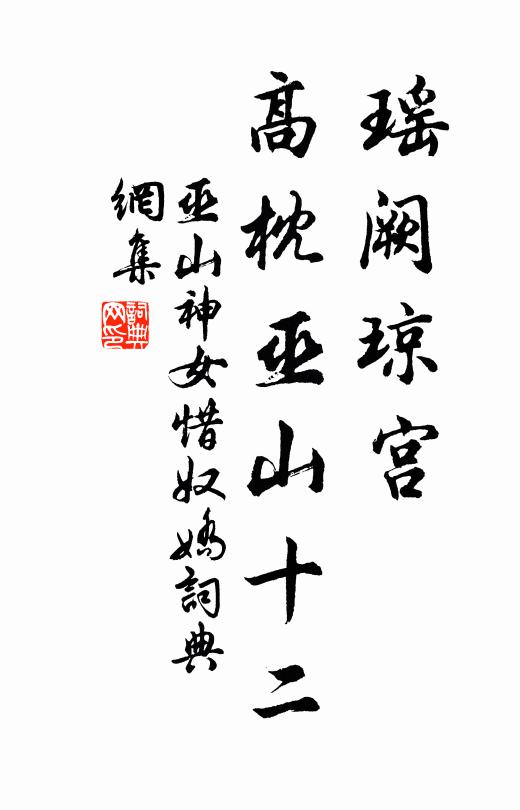 瑶阙琼宫
高枕巫山十二
巫山神女惜奴嬌詞典
網集
詞典
网印